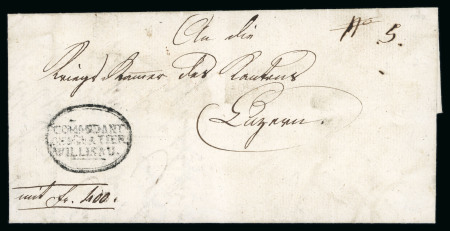 An die
No 5.
Kriegs Kamer des Kantons
Luzern.
COMMANDANT
WILLISAU.
mit fr. 400.